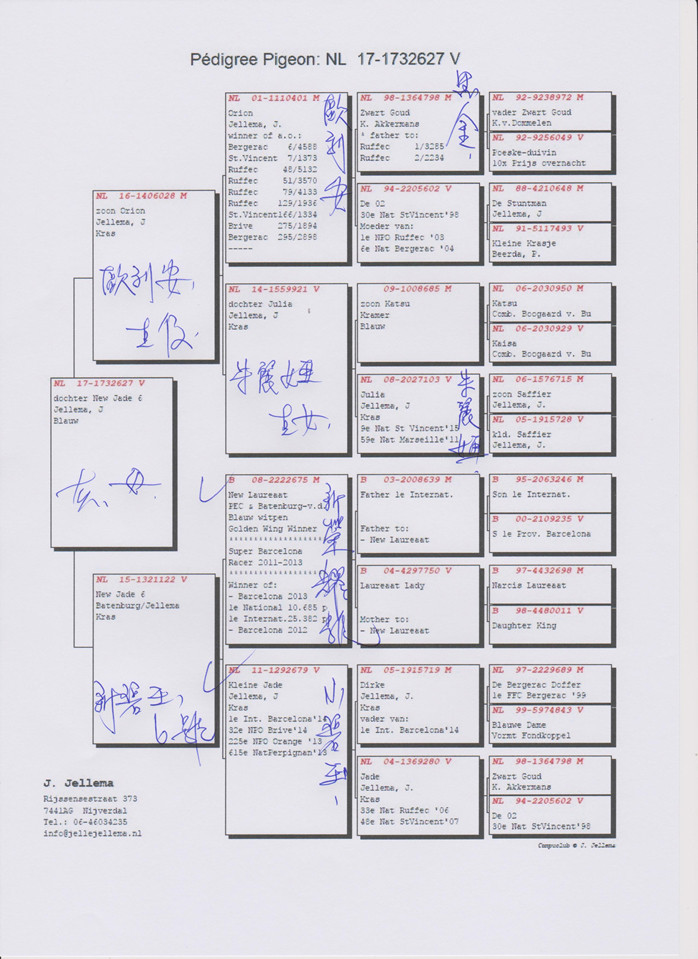 Pédigree Pigeon: NL 17-1732627 V
NL 17-1732627 V
dochter New Jade 6
Jellema, J
Blauw
NL 16-1406028 M
zoon Orion
Jellema, J
Kras
欧利安
直仔
NL 15-1321122 V
New Jade 6
Batenburg/Jellema
Kras
新碧玉
6號
NL 01-1110401 M
Orion
Jellema, J.
winner of a.o.:
Bergerac 6/4588
St.Vincent 7/1373
Ruffec 48/5132
Ruffec 51/3570
Ruffec 79/4133
Ruffec 129/1936
St.Vincent166/1334
Brive 275/1894
Bergerac 295/2898
-----
歐利安
NL 14-1559921 V
dochter Julia
Jellema, J
Kras
朱麗婭
直女
B 08-2222675 M
New Laureaat
PEC & Batenburg-v.d.
Blauw witpen
Golden Wing Winner
Super Barcelona
Racer 2011-2013
Winner of:
- Barcelona 2013
1e National 10.685 p
1e Internat.25.382 p
- Barcelona 2012
NL 11-1292679 V
Kleine Jade
Jellema, J
Kras
1e Int. Barcelona'14
32e NPO Brive'14
225e NPO Orange '13
615e NatPerpignan'13
小碧玉
NL 98-1364798 M
Zwart Goud
K. Akkermans
father to:
Ruffec 1/3285
Ruffec 2/2234
黑金
NL 94-2205602 V
De 02
30e Nat StVincent'98
Moeder van:
1e NPO Ruffec '03
6e Nat Bergerac '04
09-1008685 M
zoon Katsu
Kramer
Blauw
NL 08-2027103 V
Julia
Jellema, J
Kras
9e Nat St Vincent'15
59e Nat Marseille'11
朱麗婭
NL 03-2008639 M
Father 1e Internat.
Father to:
- New Laureaat
B 04-4297750 V
Laureaat Lady
Mother to:
- New Laureaat
NL 05-1915719 M
Dirke
Jellema, J.
Kras
vader van:
1e Int. Barcelona'14
NL 04-1369280 V
Jade
Jellema, J.
Kras
33e Nat Ruffec '06
48e Nat StVincent'07
NL 92-9238972 M
vader Zwart Goud
K.v.Dommelen
NL 92-9256049 V
Poeske-duivin
10x Prijs overnacht
NL 88-4210648 M
De Stuntman
Jellema, J
NL 91-5117493 V
Kleine Krasje
Beerda, P.
NL 06-2030950 M
Katsu
Comb. Boogaard v. Bu
NL 06-2030929 V
Kaisa
Comb. Boogaard v. Bu
NL 06-1576715 M
zoon Saffier
Jellema, J.
NL 05-1915728 V
kld. Saffier
Jellema, J.
B 95-2063246 M
Son 1e Internat.
B 00-2109235 V
S 1e Prov. Barcelona
B 97-4432698 M
Narcis Laureaat
B 98-4480011 V
Daughter King
NL 97-2229689 M
De Bergerac Doffer
1e FFC Bergerac '99
NL 99-5974843 V
Blauwe Dame
Vormt Fondkoppel
NL 98-1364798 M
Zwart Goud
K. Akkermans
NL 94-2205602 V
De 02
30e Nat StVincent'98
Compuclub © J. Jellema
J. Jellema
Rijssensestraat 373
7441AG Nijverdal
Tel.: 06-46034235
info@jellejellema.nl